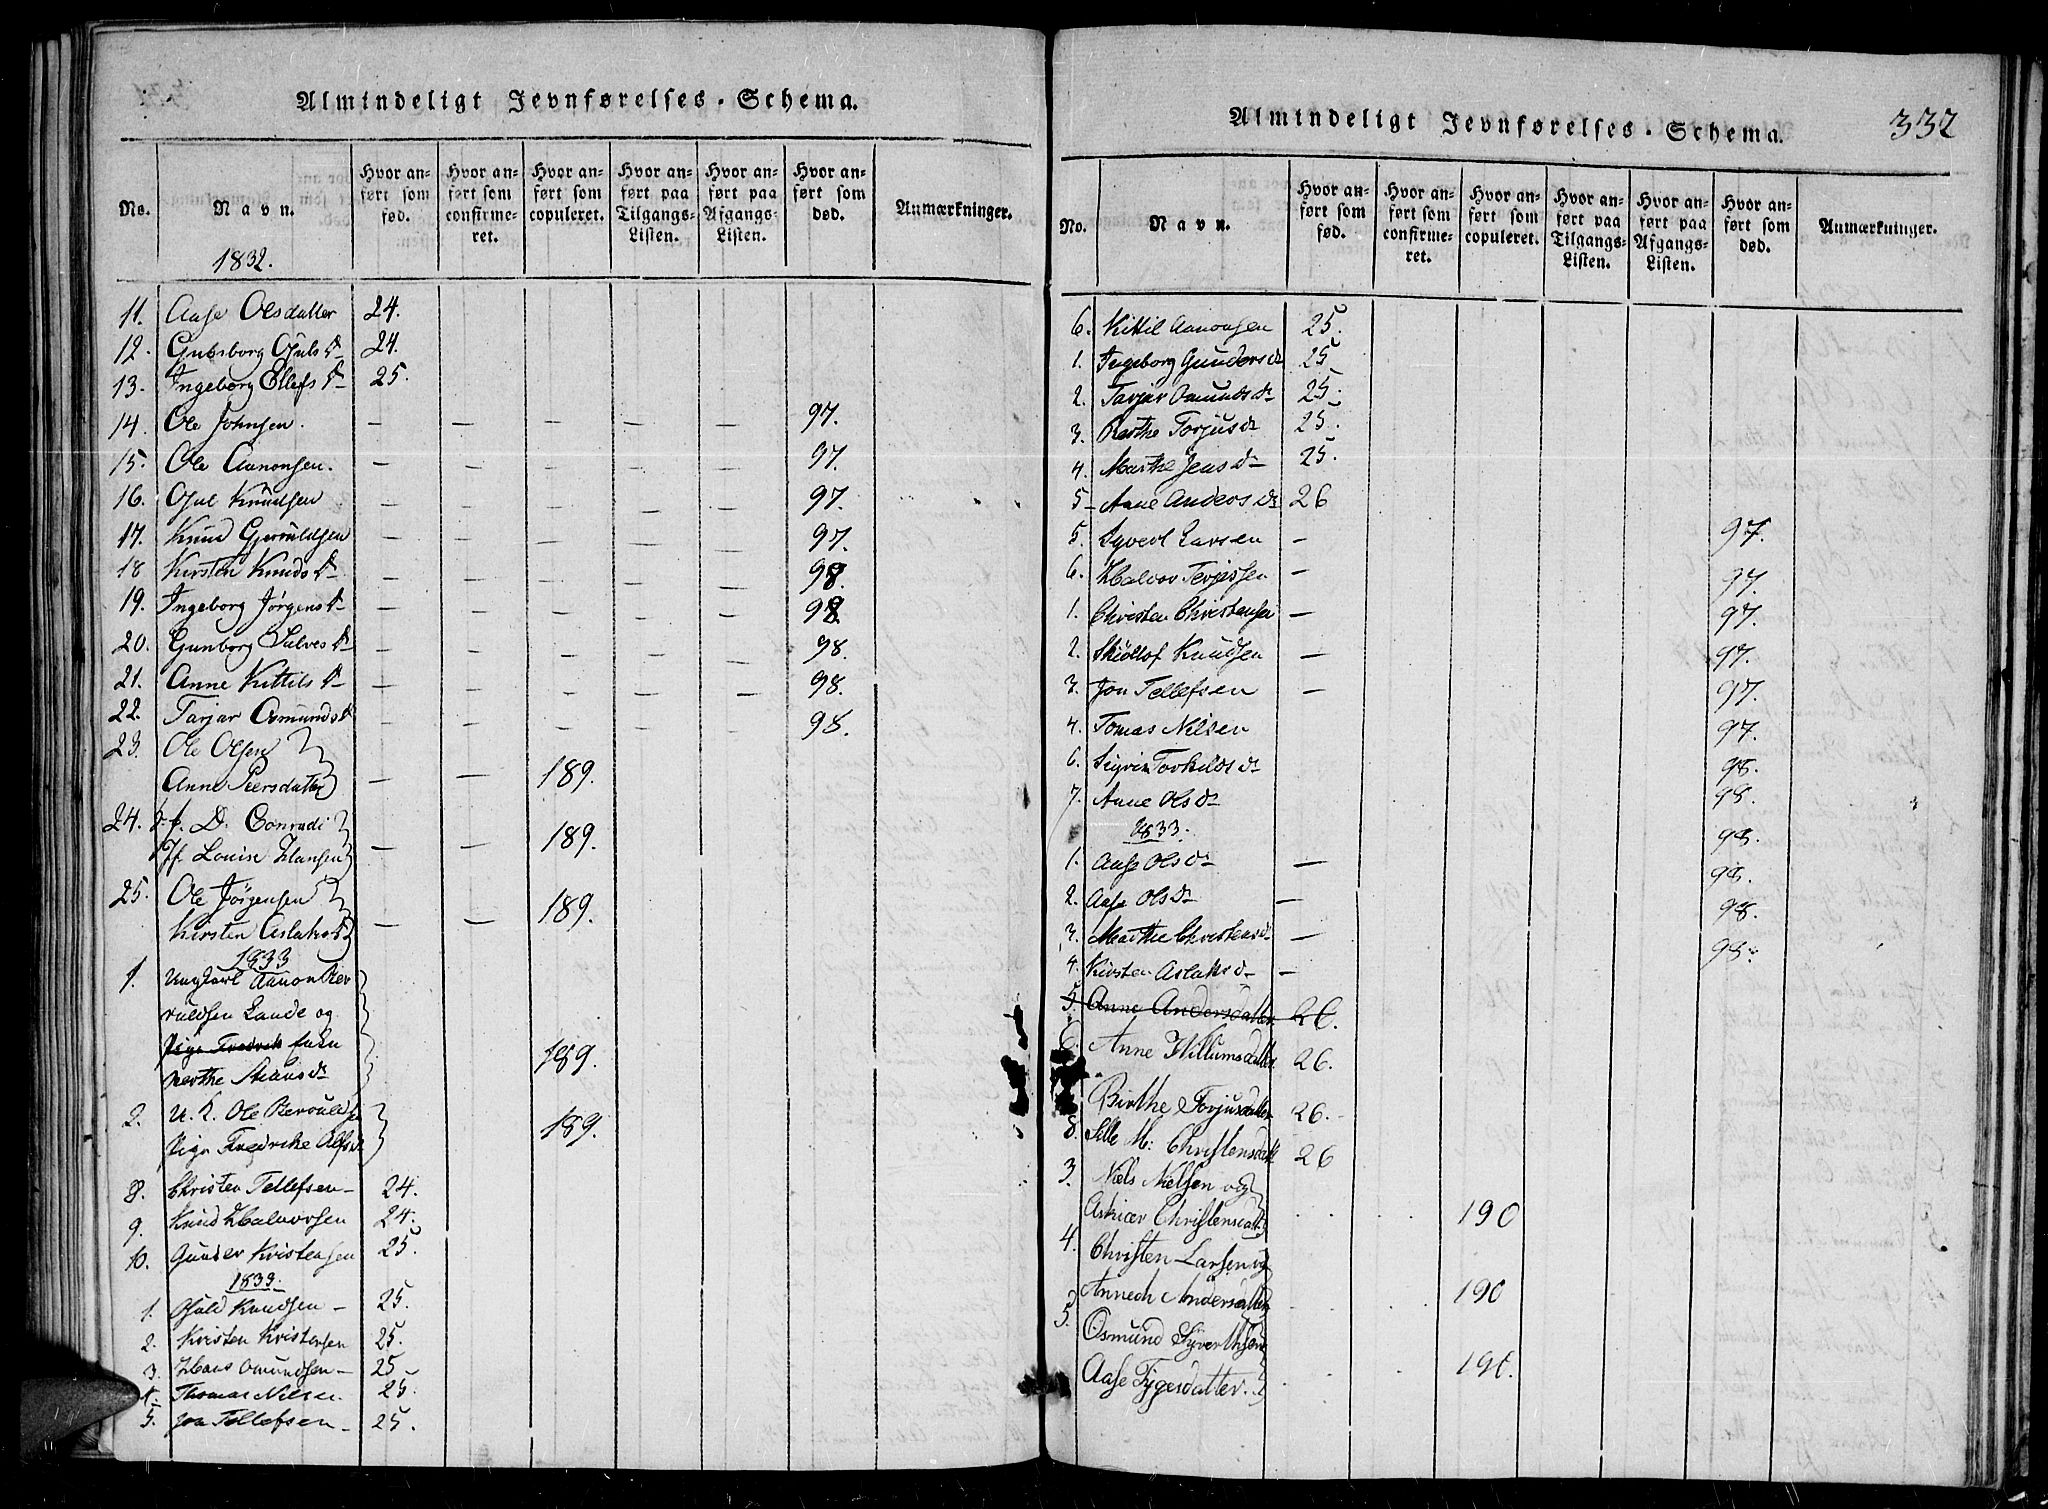 Almindeligt Jevnførelses-Schema.
No. Navn. Hvor anført som fød. Hvor anført som confirmeret. Hvor anført som copuleret. Hvor anført paa Tilgangs-Listen. Hvor anført paa Afgangs-Listen. Hvor anført som død. Anmærkninger.
1832.
11. Aase Olsdatter 24.
12. Gubsborg Ojuls Dr 24.
13. Ingeborg Ellefs Dr 25.
14. Ole Johnsen. — — — — — 97.
15. Ole Aanonsen. — — — — — 97.
16. Ojul Knudsen — — — — — 97.
17. Knud Gjeruldsen — — — — — 97.
18 Kirsten Knuds Dr — — — — — 98.
19. Ingeborg Jørgens Dr — — — — — 98
20. Gunborg Salves Dr — — — — — 98.
21. Anne Kittils Dr — — — — — 98.
22. Tarjar Osmunds Dr — — — — — 98.
23. Ole Olsen
Anne Peersdatter — — 189.
24. D. Conradi
Jf Louise Hansen — — 189.
25. Ole Jörgensen
Kirsten Aslaks Dr — — 189.
1833
1. Ungkarl Aanon Ber
ruldsen Lande og
Pige Fredrik Enken
Berthe Stians Dr 189.
2. U. K. Ole Beruulds
Pige Fredrike Alfs Dr 189.
8. Christen Tellefsen — 24.
9. Knud Halvorsen 24.
10. Gunder Kristensen 25.
1833.
1. Ojuld Knudsen — 25.
2. Kristen Kristensen 25.
3. Hans Omundsen — 25
4. Thomas Nilsen 25.
5. Jon Tellefsen — 25.
Almindeligt Jevnførelses-Schema.
332
No. Navn. Hvor anført som fød. Hvor anført som confirmeret. Hvor anført som copuleret. Hvor anført paa Tilgangs-Listen. Hvor anført paa Afgangs-Listen. Hvor anført som død. Anmærkninger.
6. Kittil Aanonsen 25.
1. Ingeborg Gunders Dr 25
2. Tarjar Omunds Dr 25.
3. Berthe Torjus Dr 25.
4. Marthe Jens Dr 25.
5 Anne Anders Dr 26
5. Syvert Larsen — 97.
6. Halvor Terjessen — 97.
1. Christen Christensen — 97.
2. Skiöllof Knudsen — 97.
3. Jon Tellefsen — 97.
4. Tomas Nilsen 97.
6. Sigvin Torkilds Dr 98.
7. Anne Ols Dr 98.
1833. 98.
1. Aase Ols Dr — 98.
2. Aase Ols Dr — 98.
3. Marthe Christens Dr — 98.
4. Kirsten Aslaks Dr —
5. Anne Andersdatter 26.
6. Anne Willumsdatter 26.
Birthe Torjusdatter 26.
8. Sille M: Christensdatt 26
3. Niels Nielsen og
Christensdatt 190
4. Christen Larsen og
Annech Andersdatter 190
5. Osmund Syverthsen
Aase Tygesdatter. 190.